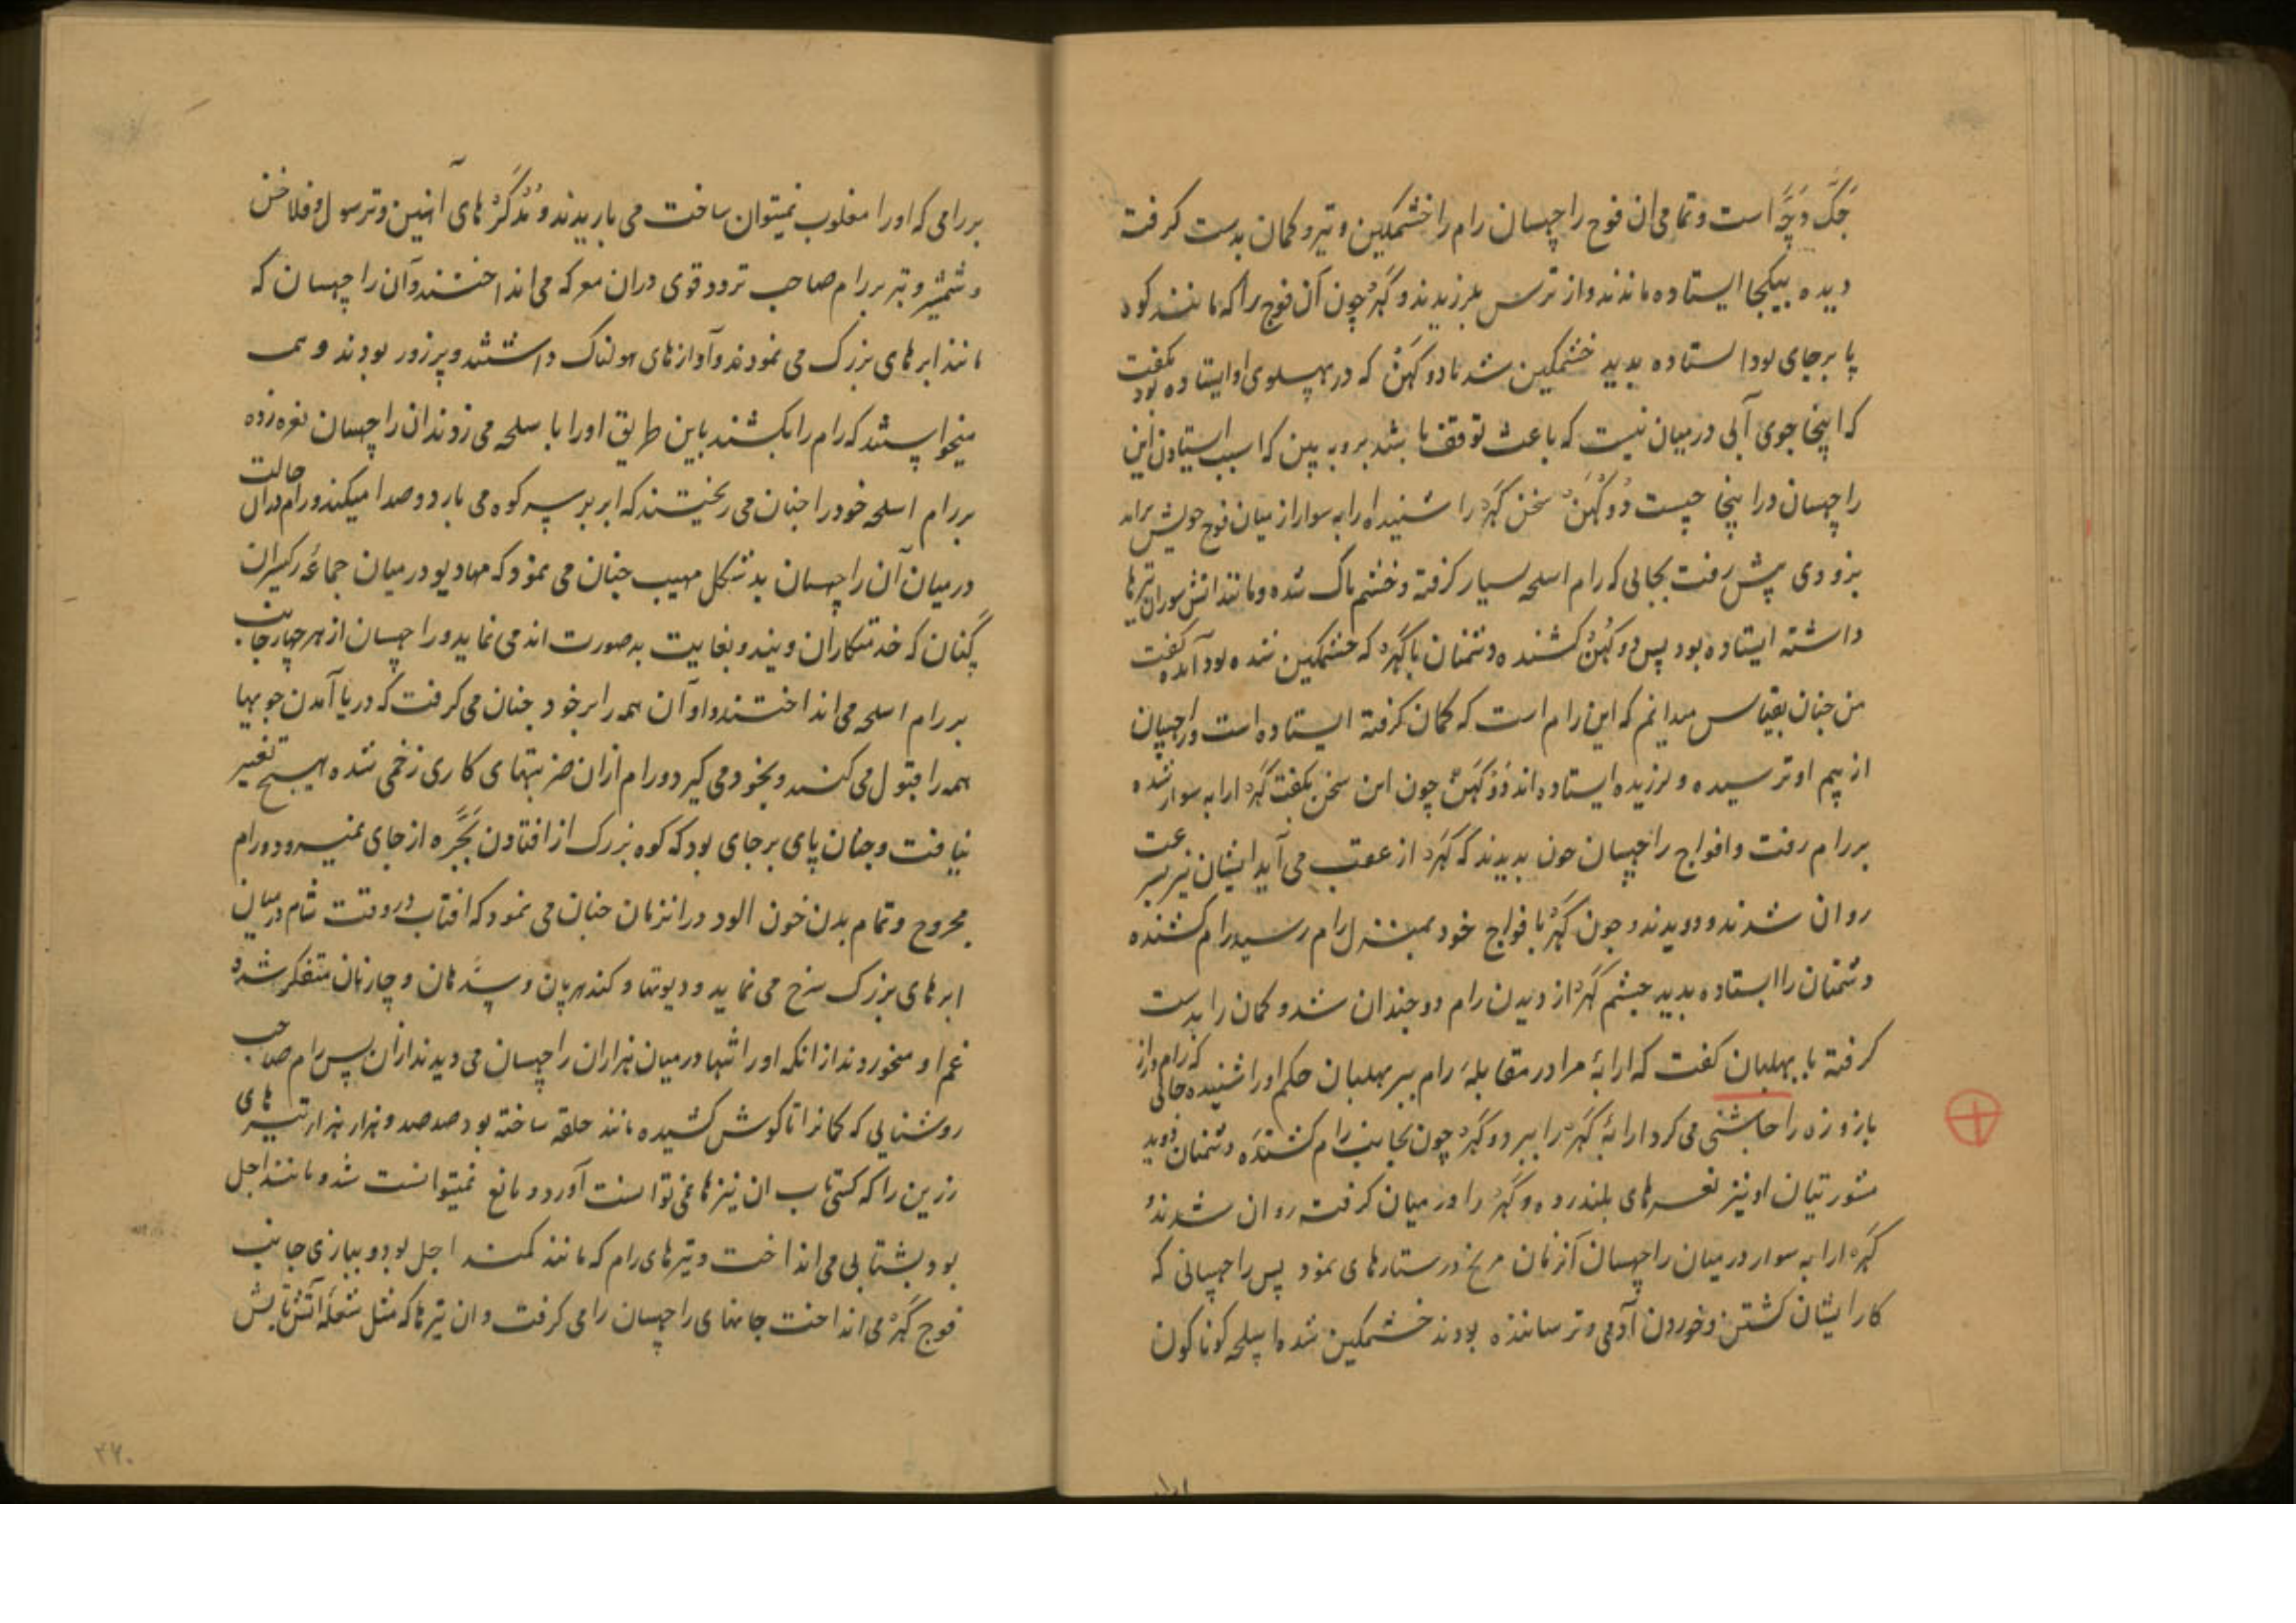 جگ وچّ است و تمامی ان فوج راچهسان رام را خشمکین و تیر و کمان بدست کرفته
دیده بیکجا ایستاده ماندند و از ترس بلرزیدند و کهَر چون آن فوج را که مانند کوه
پا برجای بود استاده بدید خشمکین شد با دوکهَن که در پهلوی او ایستاده بود بکفت
که اینجا جوی آبی درمیان نیست که باعث توقف باشد برو به بین که سبب استادن این
راچهسان در اینجا چیست دوکهَن سخن کهَر را شنیده ارابه سوار از میان فوج خویش برامد
بزودی پیش رفت بجائی که رام اسلحه بسیار کرفته و خشم ناک شده و مانند اتش سوزان تیرها
داشته ایستاده بود پس دوکهَن کشنده دشمنان با کهَر که خشمکین شده بود آمده کفت
من چنان بقیاس میدانم که این رام است که کمان کرفته ایستاده است و راچهسان
از بیم او ترسیده و لرزیده ایستاده اند دوکهَن چون این سخن بکفت کهَر ارابه سوار شده
بررام رفت و افواج راچهسان چون بدیدند که کهَر از عقب می آید ایشان نیز بسرعت
روان شدند و دویدند و چون کهَر با فواج خود بمنزل رام رسید رام کشنده
دشمنان را ایستاده بدید چشم کهَر از دیدن رام دو چندان شد و کمان را بدست
کرفته با بهلبان کفت که ارابهٔ مرا در مقابلهٔ رام ببر بهلبان حکم او را شنیده جائی که رام دراز
بازو زه را چاشنی می کرد ارابهٔ کهَر را ببرد و کهَر چون بجانب رام کشنده دشمنان دوید
مشورتیان او نیز نعره های بلند زده و کهَر را در میان کرفته روان شدند و
کهَر ارابه سوار درمیان راچهسان آنزمان مریخ در ستارهای نمود پس راچهسانی که
کار ایشان کشتن و خوردن آدمی و ترساننده بودند خشمکین شده اسلحه کوناکون
بررامی که او را مغلوب نمیتوان ساخت می باریدند و مُدکَرهای آهنین و ترسول و فلاخن
و شمشیر و تبر بررام صاحب تردد قوی دران معرکه می انداختند و آن راچهسان که
مانند ابرهای بزرک می نمودند و آوازهای هولناک داشتند و پرزور بودند و همه
میخواستند که رام را بکشند باین طریق او را با سلحه می زدند ان راچهسان نعره زده
بررام اسلحه خود را چنان می ریختند که ابر بر سر کوه می بارد و صدا میکند و رام دران حالت
درمیان آن راچهسان بد شکل مهیب چنان می نمود که مهادیو درمیان جماعهٔ
گنان که خدمتکاران ویند و بغایت بدصورت اند می نماید و راچهسان از هر چهار جانب
بررام اسلحه می انداختند و او آن همه را بر خود چنان می کرفت که دریا آمدن جویها
همه را قبول می کند و بخود می کیرد و رام ازان ضربتهای کاری زخمی شده هیچ تغیر
نیافت و چنان پای برجای بود که کوه بزرک از افتادن بجّره از جای نمیرود و رام
مجروح و تمام بدن خون الود در انزمان چنان می نمود که افتاب در وقت شام درمیان
ابرهای بزرک سرخ می نماید و دیوتها و کندهرپان و سِدّهان و چارنان متفکر شده
غم او میخوردند از انکه او را تنها درمیان هزاران راچهسان می دیدند ازان پس رام صاحب
روشنایی که کمانرا تا کوش کشیده مانند حلقه ساخته بود صد صد و هزار هزار تیرهای
زرین را که کسی تاب ان تیرها نمی توانست آورد و مانع نمیتوانست شد و مانند اجل
بود بشتابی می انداخت و تیرهای رام که مانند کمند اجل بود و ببازی جانب
فوج کهَر می انداخت جانهای راچهسان را می کرفت و ان تیرها که مثل شعلهٔ آتش تابش
۲۷۰